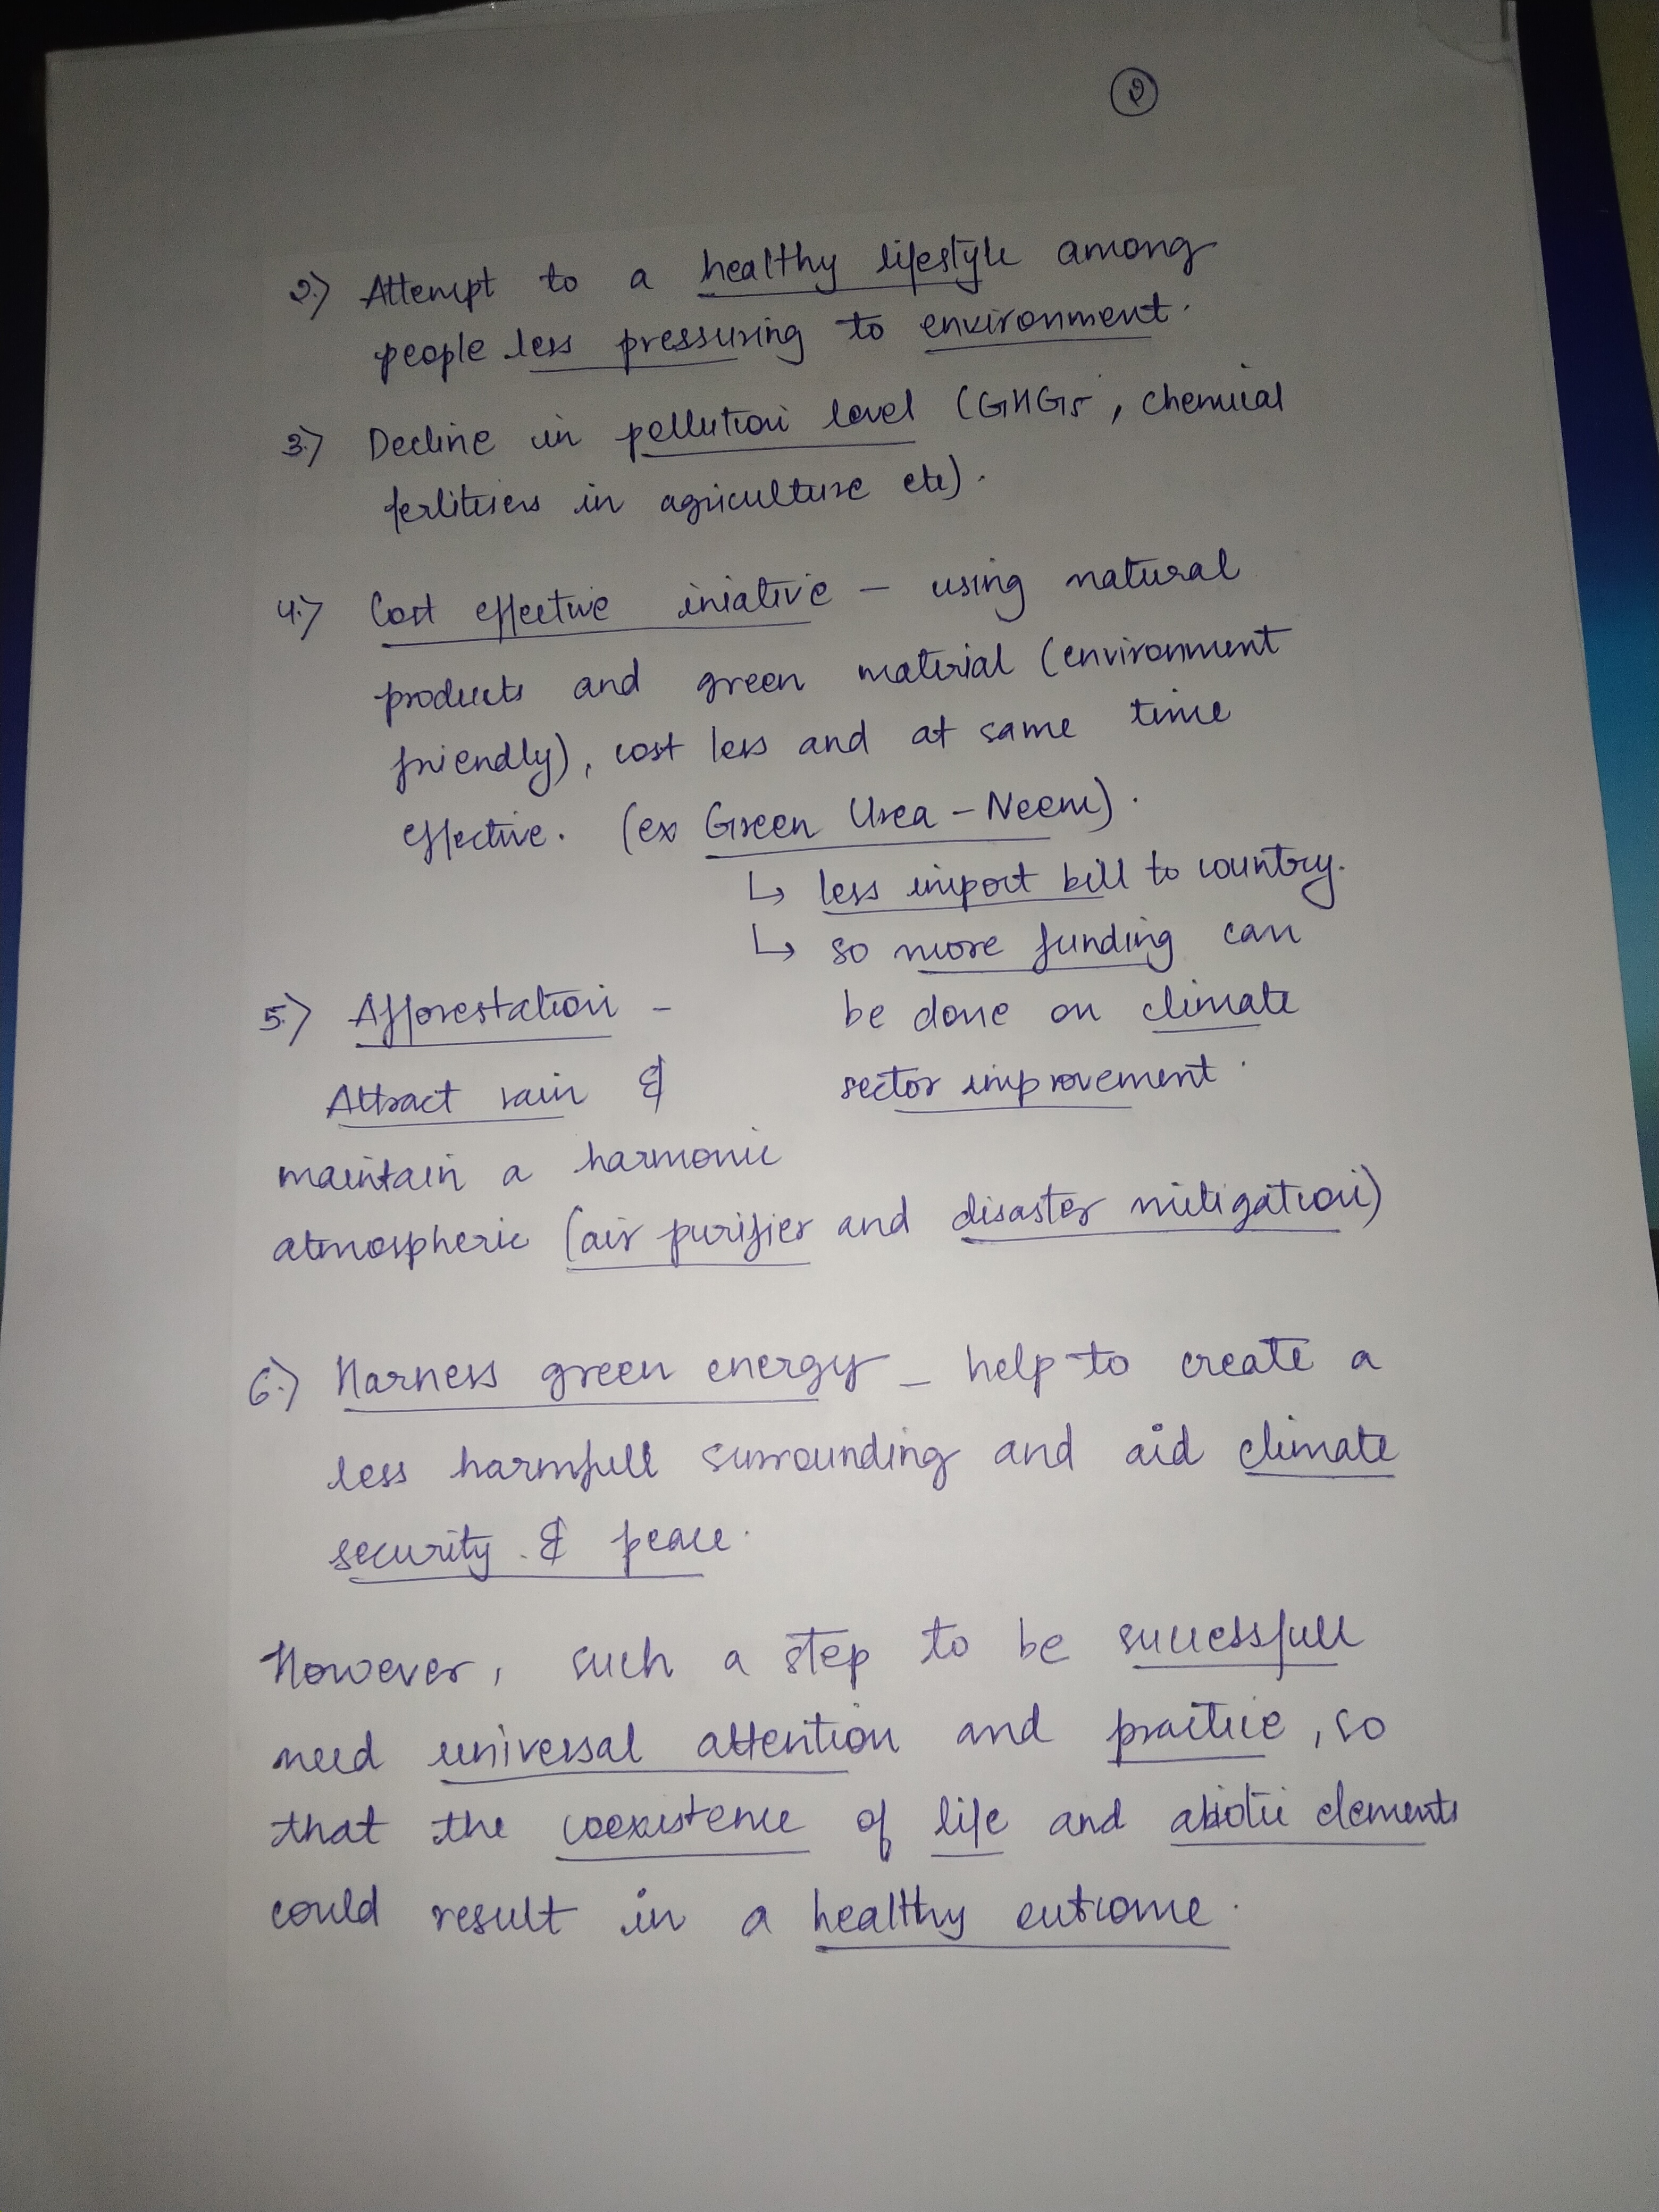 2
2.) Attempt to a healthy lifestyle among
people less pressuring to environment.
3.) Decline in pollution level (GHGs, chemical
fertilisers in agriculture etc).
4.) Cost effective iniative – using natural
products and green material (environment
friendly), cost less and at same time
effective. (ex Green Urea – Neem).
↳ less import bill to country.
↳ so more funding can
be done on climate
sector improvement.
5.) Afforestation –
Attract rain &
maintain a harmonic
atmospheric (air purifier and disaster mitigation)
6.) Harness green energy – help to create a
less harmfull surrounding and aid climate
security & peace.
However, such a step to be successfull
need universal attention and practice, so
that the coexistence of life and abiotic elements
could result in a healthy outcome.